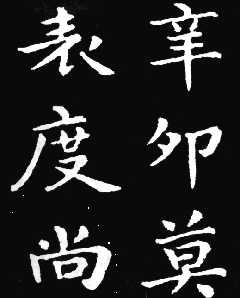 辛卯莫
表度尚